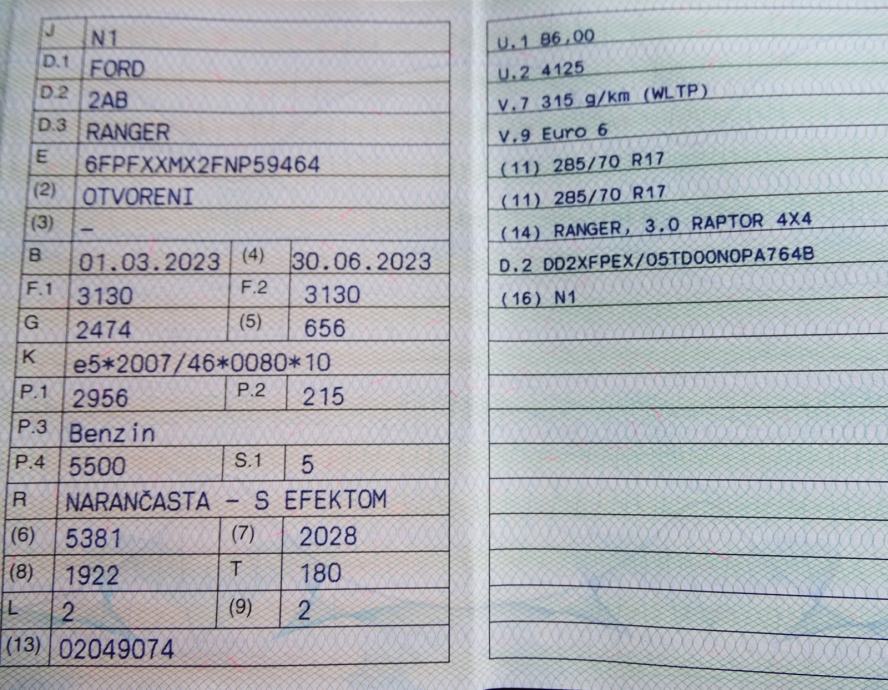 J N1
D.1 FORD
D.2 2AB
D.3 RANGER
E 6FPFXXMX2FNP59464
(2) OTVORENI
(3) –
B 01.03.2023 (4) 30.06.2023
F.1 3130 F.2 3130
G 2474 (5) 656
K e5*2007/46*0080*10
P.1 2956 P.2 215
P.3 Benzin
P.4 5500 S.1 5
R NARANČASTA - S EFEKTOM
(6) 5381 (7) 2028
(8) 1922 T 180
L 2 (9) 2
(13) 02049074
U.1 86,00
U.2 4125
V.7 315 g/km (WLTP)
V.9 Euro 6
(11) 285/70 R17
(11) 285/70 R17
(14) RANGER, 3.0 RAPTOR 4X4
D.2 DD2XFPEX/05TDOONOPA764B
(16) N1